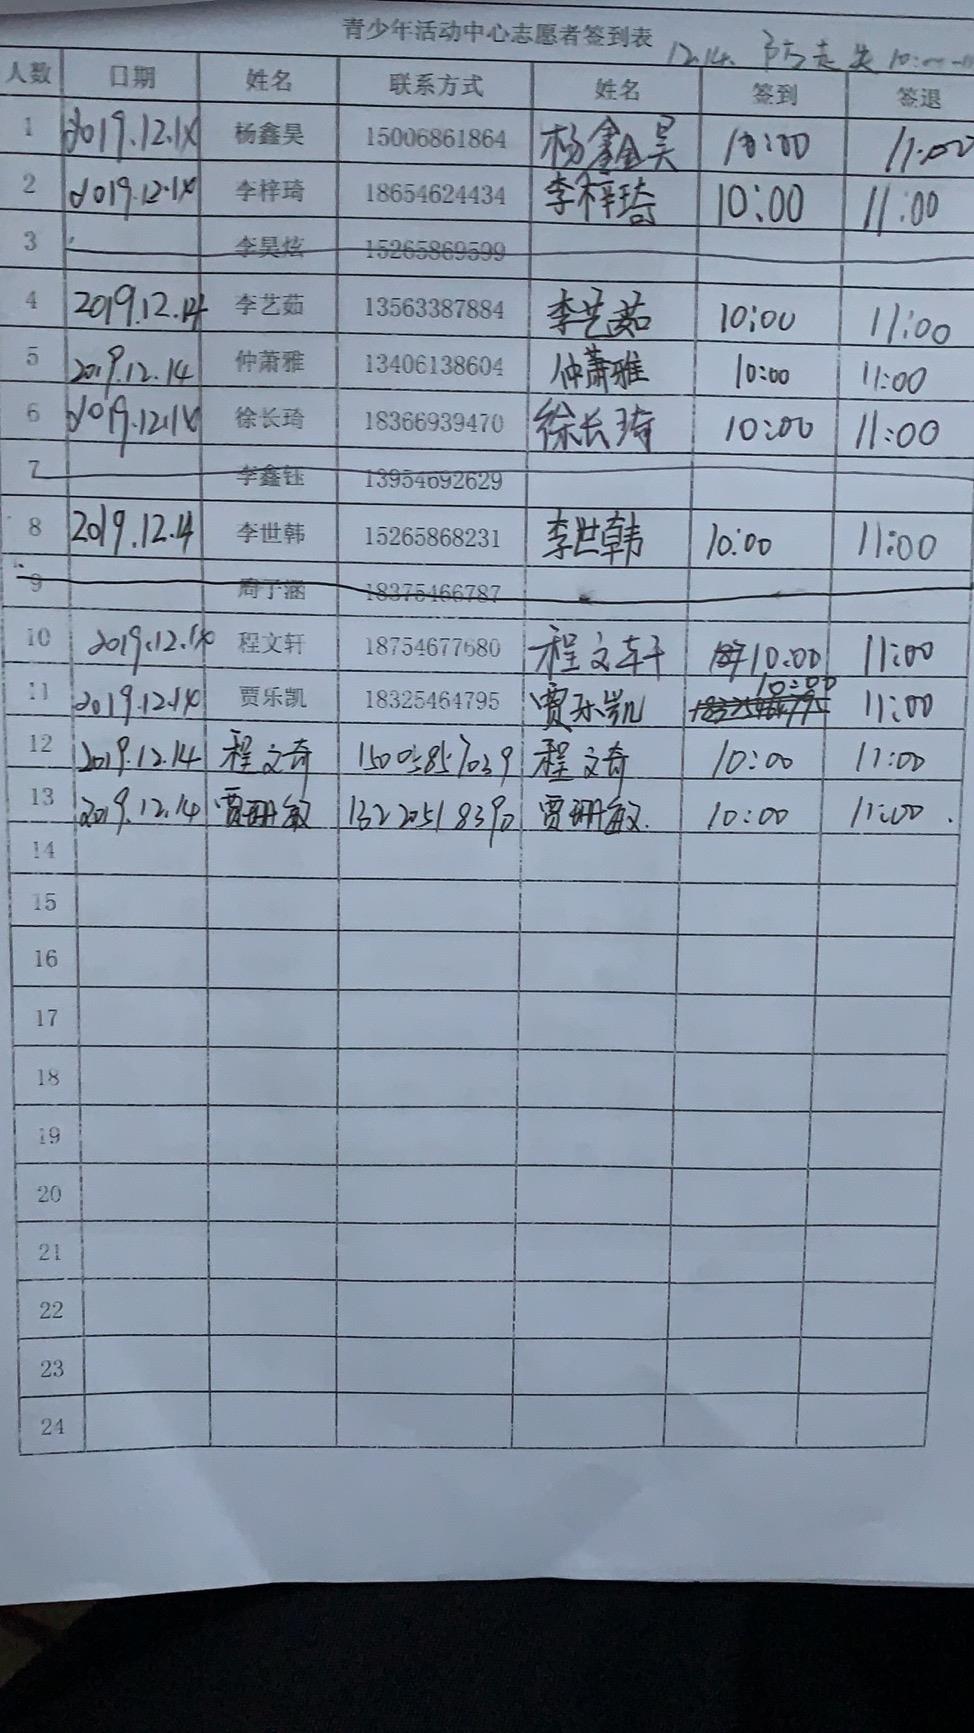 青少年活动中心志愿者签到表
12.14. 防走失 10:00
人数 日期 姓名 联系方式 姓名 签到 签退
1 2019.12.14 杨鑫昊 15006861864 杨鑫昊 10:00 11:00
2 2019.12.14 李梓琦 18654624434 李梓琦 10:00 11:00
3 李昊炫 15265869599
4 2019.12.14 李艺茹 13563387884 李艺茹 10:00 11:00
5 2019.12.14 仲萧雅 13406138604 仲萧雅 10:00 11:00
6 2019.12.14 徐长琦 18366939470 徐长琦 10:00 11:00
7 李鑫钰 13954692629
8 2019.12.14 李世韩 15265868231 李世韩 10:00 11:00
9 周子涵 18375466787
10 2019.12.14 程文轩 18754677680 程文轩 10:00 11:00
11 2019.12.14 贾乐凯 18325464795 贾乐凯 10:00 11:00
12 2019.12.14 程文奇 15005857039 程文奇 10:00 11:00
13 2019.12.14 贾珊敏 13220518390 贾珊敏. 10:00 11:00.
14
15
16
17
18
19
20
21
22
23
24